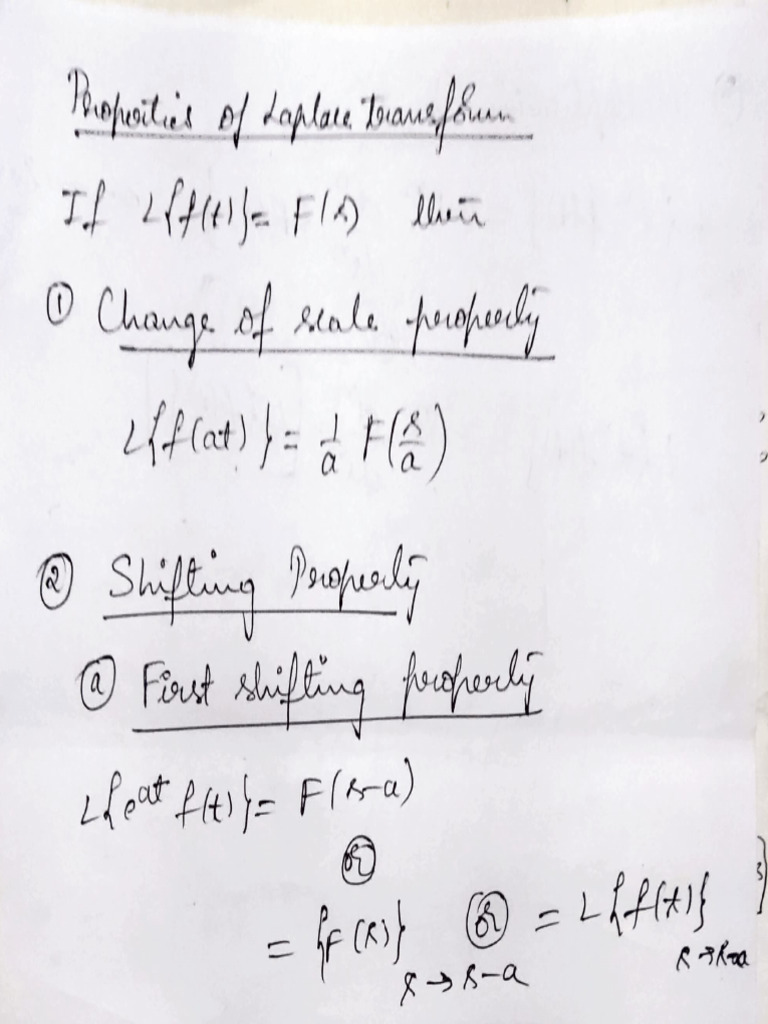 Properties of Laplace transform
If L{f(t)} = F(s) then
① Change of scale property
L{f(at)} = 1/a F(s/a)
② Shifting Property
ⓐ First shifting property
L{e^at f(t)} = F(s-a)
or
= {F(s)} s→s-a or = L{f(t)} s→s-a